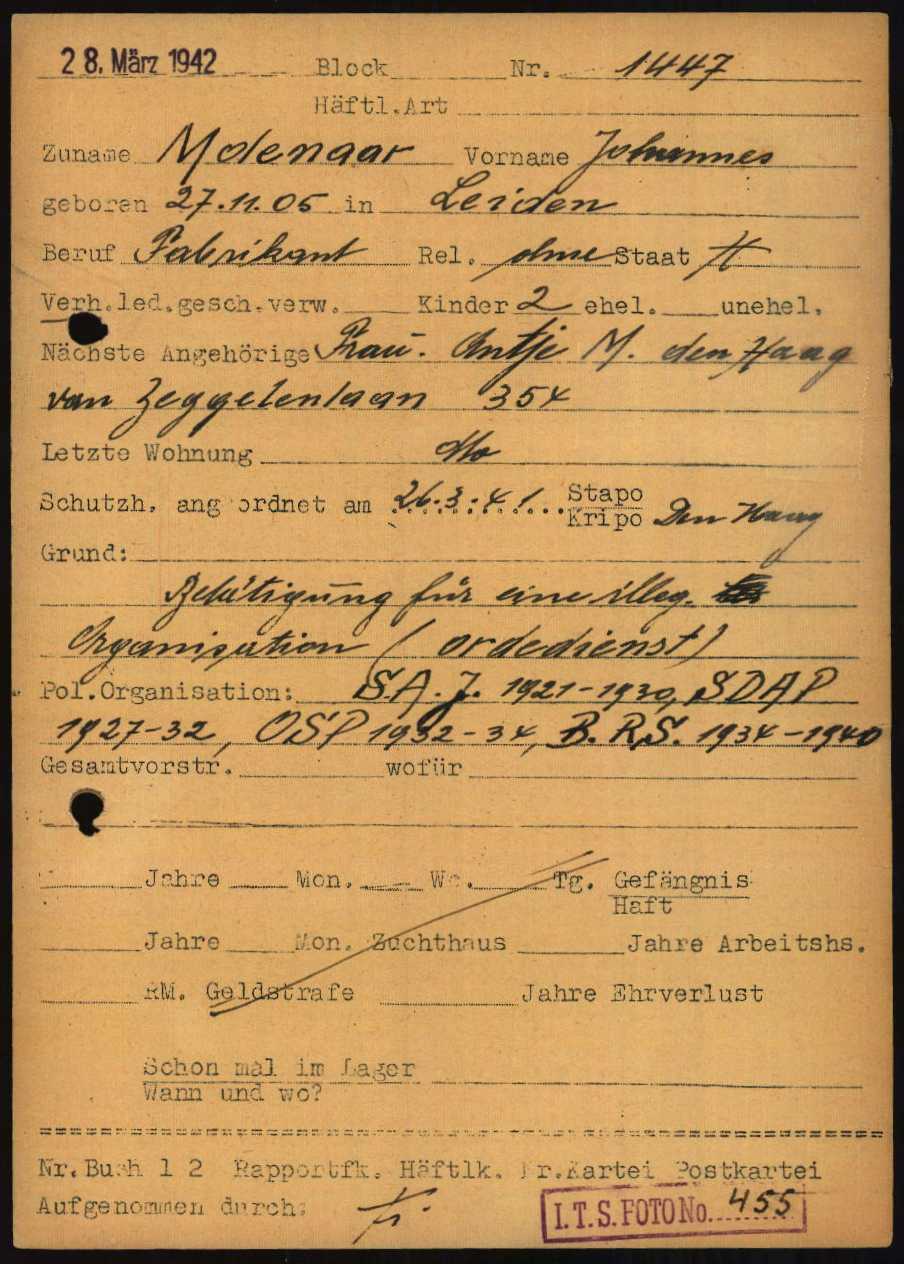 28. März 1942 Block Nr. 1447
Häftl.Art
Zuname Molenaar Vorname Johannes
geboren 27.11.05 in Leiden
Beruf Fabrikant Rel. ohne Staat H
Verh.led.gesch.verw. Kinder 2 ehel. unehel.
Nächste Angehörige Frau. Antje M. den Haag
van Zeggelenlaan 354
Letzte Wohnung dto
Schutzh. angeordnet am 26.3.41. Stapo
Kripo Den Haag
Grund:
Betätigung für eine illeg.
Organisation (ordedienst)
Pol.Organisation: S.A.J. 1921-1930, SDAP
1927-32, OSP 1932-34, B.R.S. 1934-1940
Gesamtvorstr. wofür
Jahre Mon. Wo. Tg. Gefängnis
Haft
Jahre Mon. Zuchthaus Jahre Arbeitshs.
RM. Geldstrafe Jahre Ehrverlust
Schon mal im Lager
Wann und wo?
Nr.Buch 1 2 Rapportfk. Häftlk. Nr.Kartei Postkartei
Aufgenommen durch:
I.T.S. FOTO No. 455